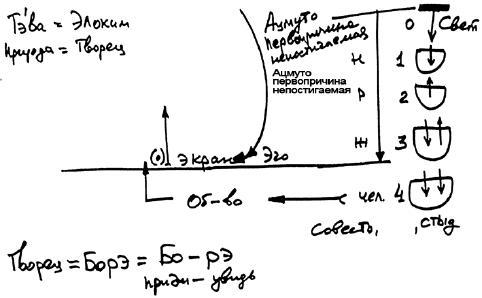 Тэва = Элоким
природа = Творец
Ацмуто
первопричина
непостигаемая
Ацмуто
первопричина
непостигаемая
0 Свет
Н 1
Р 2
Ж 3
(0) экран Эго
Об-во
чел. 4
совесть, , стыд
Творец = Борэ = Бо - рэ
приди - увидь